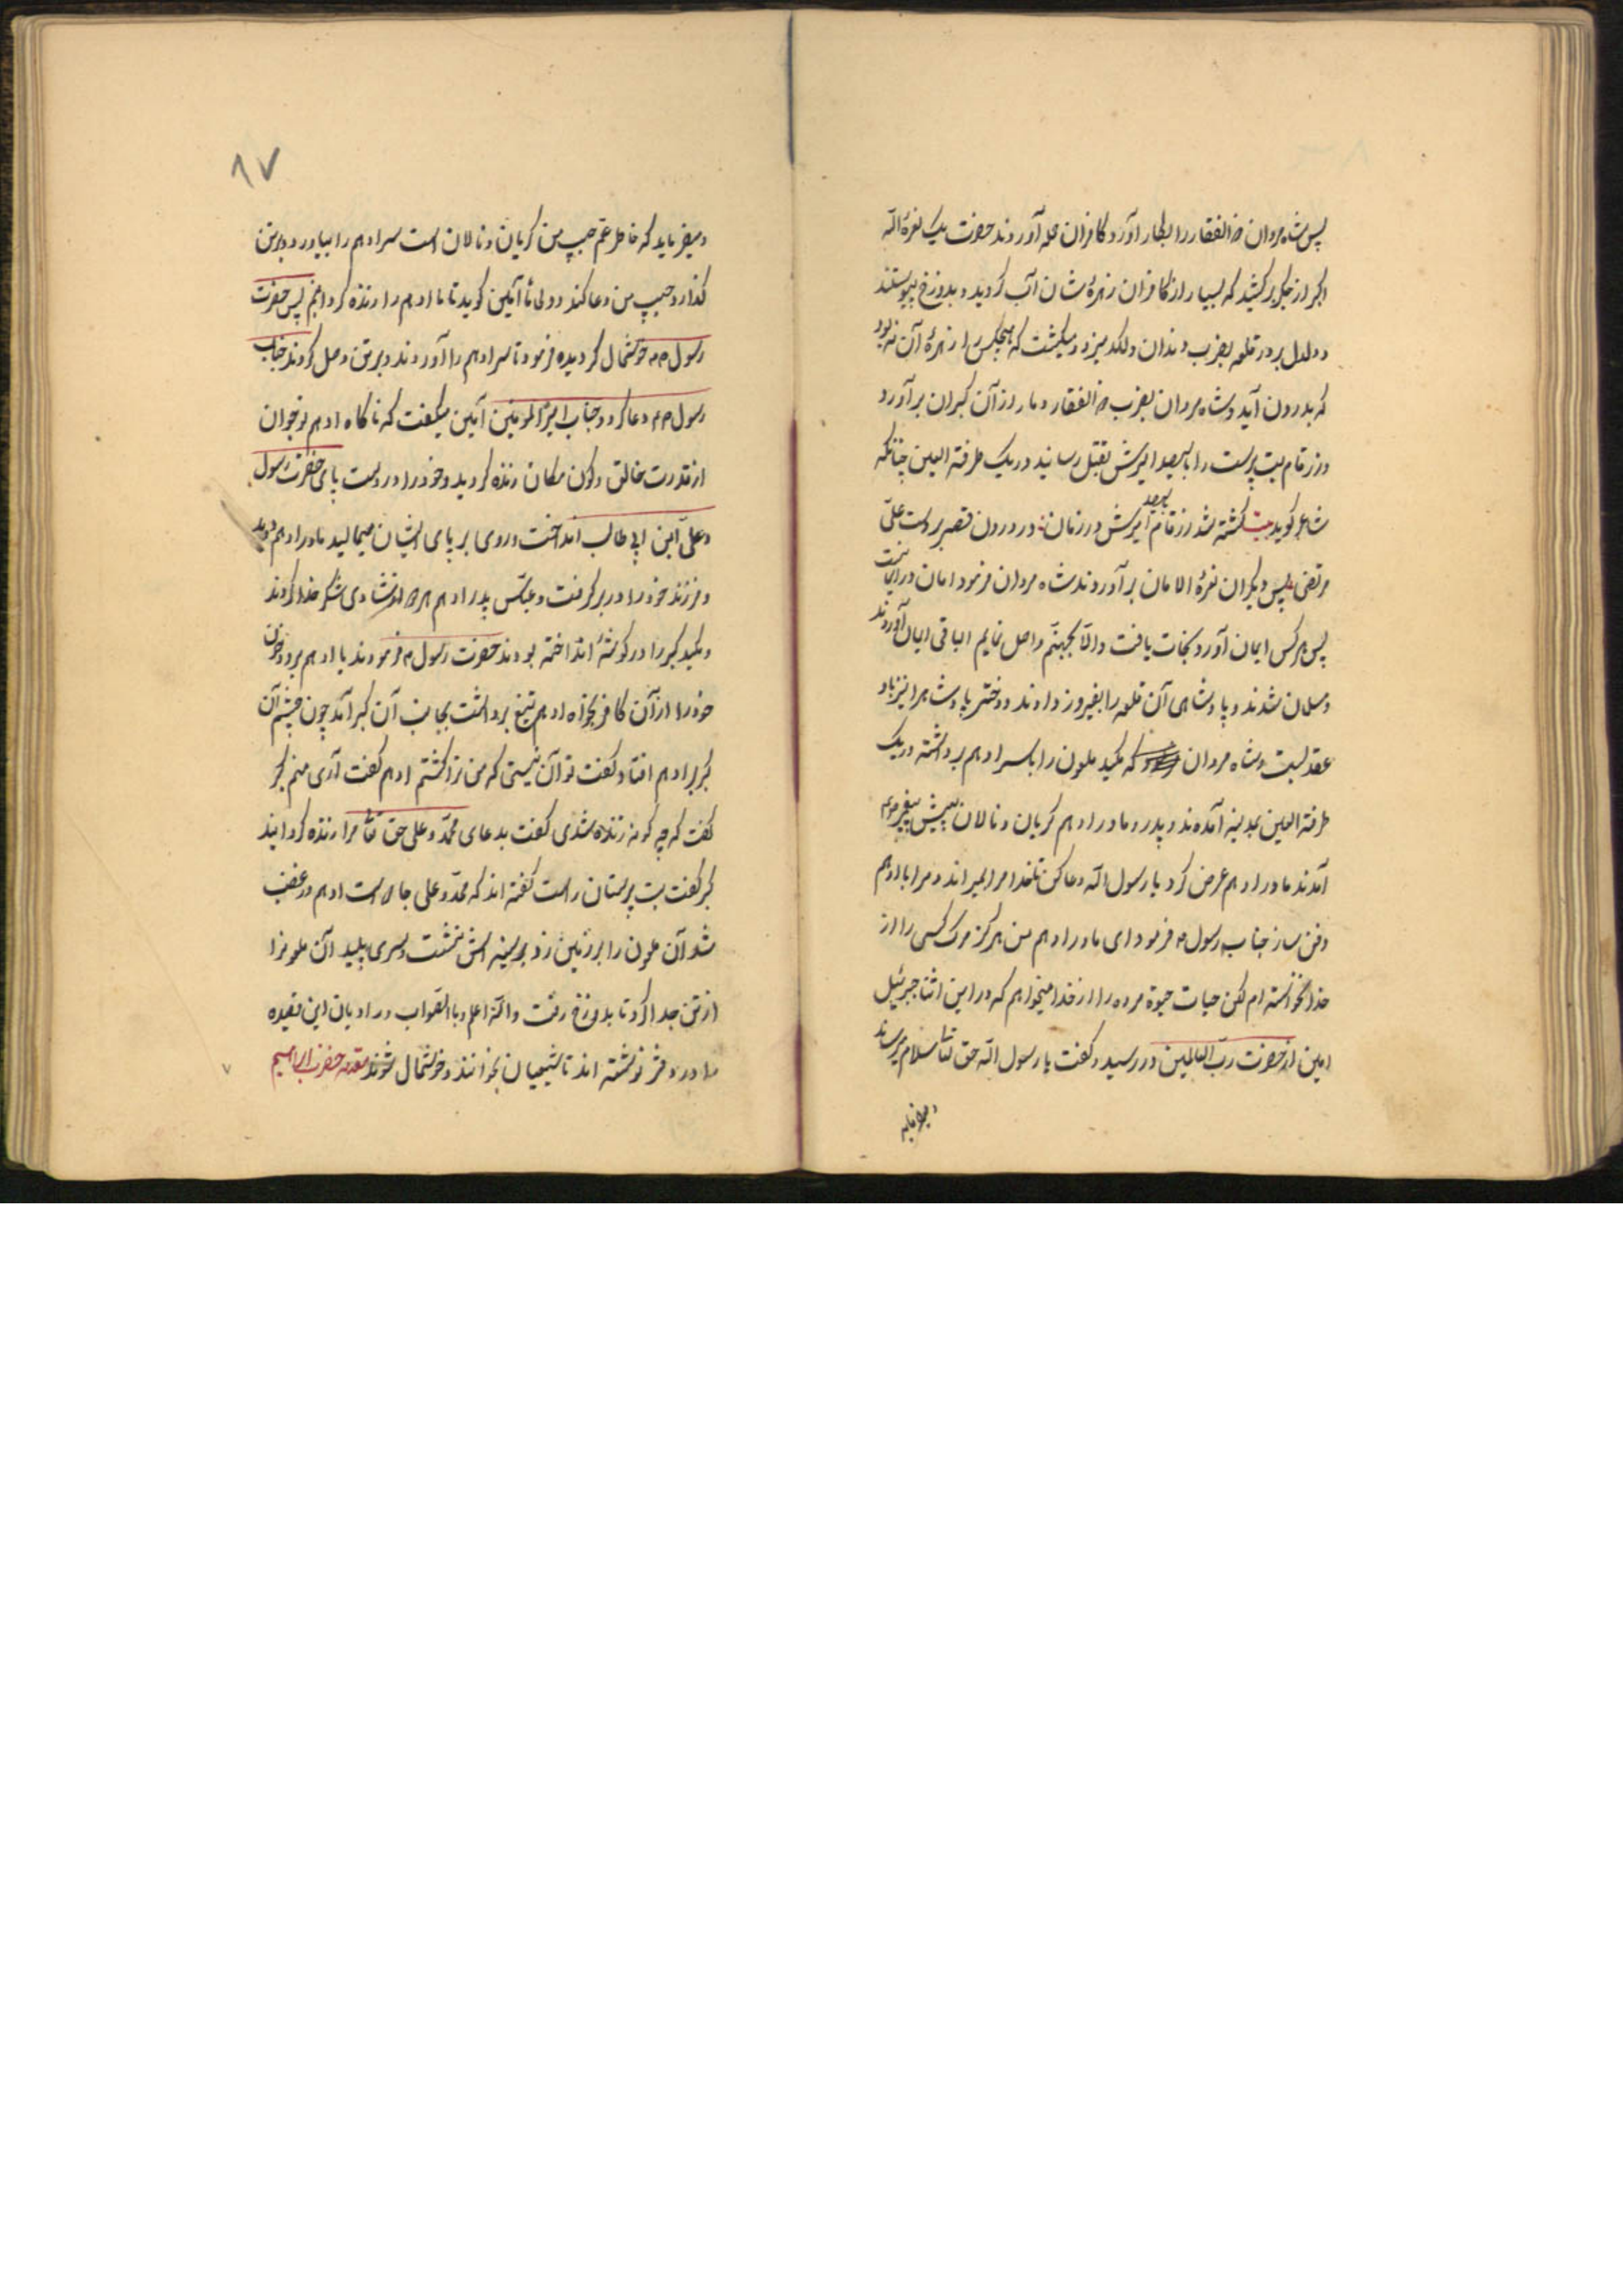 پس شاه مردان ذالفقار را بکار آورد کافران حمله آوردند حضرت یک نعرهٔ الله
اکبر از جکر برکشید که بسیار از کافران زهرهٔ شان آب کردید و بدوزخ پیوستند
و دلدل بر در قلعه بضرب دندان و لکد میزد و میکشت که هیچکس را زهرهٔ آن نه بود
که بدرون آید و شاه مردان بضرب ذالفقار دمار از آن کبران برآورد
و زرقام بت پرست را با سیصد امیرش بقتل رسانید در یک طرفته العین چنانکه
شاعر کوید بیت کشته شد زرقام سیصد امیرش در زمان در درون قصر بر دست علی
مرتضی پس دیکران نعرهٔ الامان برآوردند شاه مردان فرمود امان در ایمانست
پس هر کس ایمان آورد نجات یافت والا بجهنم واصل نمایم الباقی ایمان آوردند
و مسلمان شدند و پادشاهی آن قلعه را بفیروز دادند و دختر پادشاه را نیز باو
عقد بست و شاه مردان که مکید ملعون را با سر ادهم برداشته در یک
طرفته العین بمدینه آمدند و پدر و مادر ادهم کریان و نالان پیش پیغمبر
آمدند مادر ادهم عرض کرد یا رسول الله دعا کن تا خدا مرا بمیراند و مرا با ادهم
دفن ساز جناب رسول فرمود ای مادر ادهم من هرکز مرک کسی را از
خدا نخواسته ام لکن حیات حیوة مرده را از خدا میخواهم که در این اثنا جبرئیل
امین از حضرت رب العالمین در رسید و کفت یا رسول الله حق تعا سلام میرساند
و میفرماید
۸۷
و میفرماید که خاطر عم حبیب من کریان و نالان است سر ادهم را بیاورد و بر تن
کذارد و حبیب من دعا کند و ولی ما آمین کوید تا ما ادهم را زنده کردانیم پس حضرت
رسول خوشحال کردیده فرمود تا سر ادهم را آوردند و بر تن وصل کردند جناب
رسول دعا کرد و جناب امیرالمومنین آمین میکفت که ناکاه ادهم نوجوان
از قدرت خالق و کون مکان زنده کردید و خود را در دست پای حضرت رسول
و علی ابن ابی طالب انداخت و روی بر پای ایشان میمالید مادر ادهم دوید
و فرزند خود را در بر کرفت و عباس پدر ادهم شادی شکر خدا کردند
و مکید کبر را در کوشهٔ انداخته بودند حضرت رسول فرمودند یا ادهم برو و خون
خود را از آن کافر بخواه ادهم تیغ برداشت بجانب آن کبر آمد چون چشم آن
کبر بر ادهم افتاد کفت تو آن نیستی که من ترا کشتم ادهم کفت آری منم کبر
کفت که چه کونه زنده شدی کفت بدعای محمد و علی حق تعا مرا زنده کردانید
کبر کفت بت پرستان راست کفته اند که محمد و علی جادو است ادهم در غضب
شد آن ملعون را بر زمین زد بر سینه اش نشست و سری پلید آن ملعونرا
از تن جدا کرد تا بدوزخ رفت والله اعلم و بالصواب و راویان این قصیده
را در دفتر نوشته اند تا شیعیان بخوانند و خوشحال شوند مقدمه حضرت ابراهیم